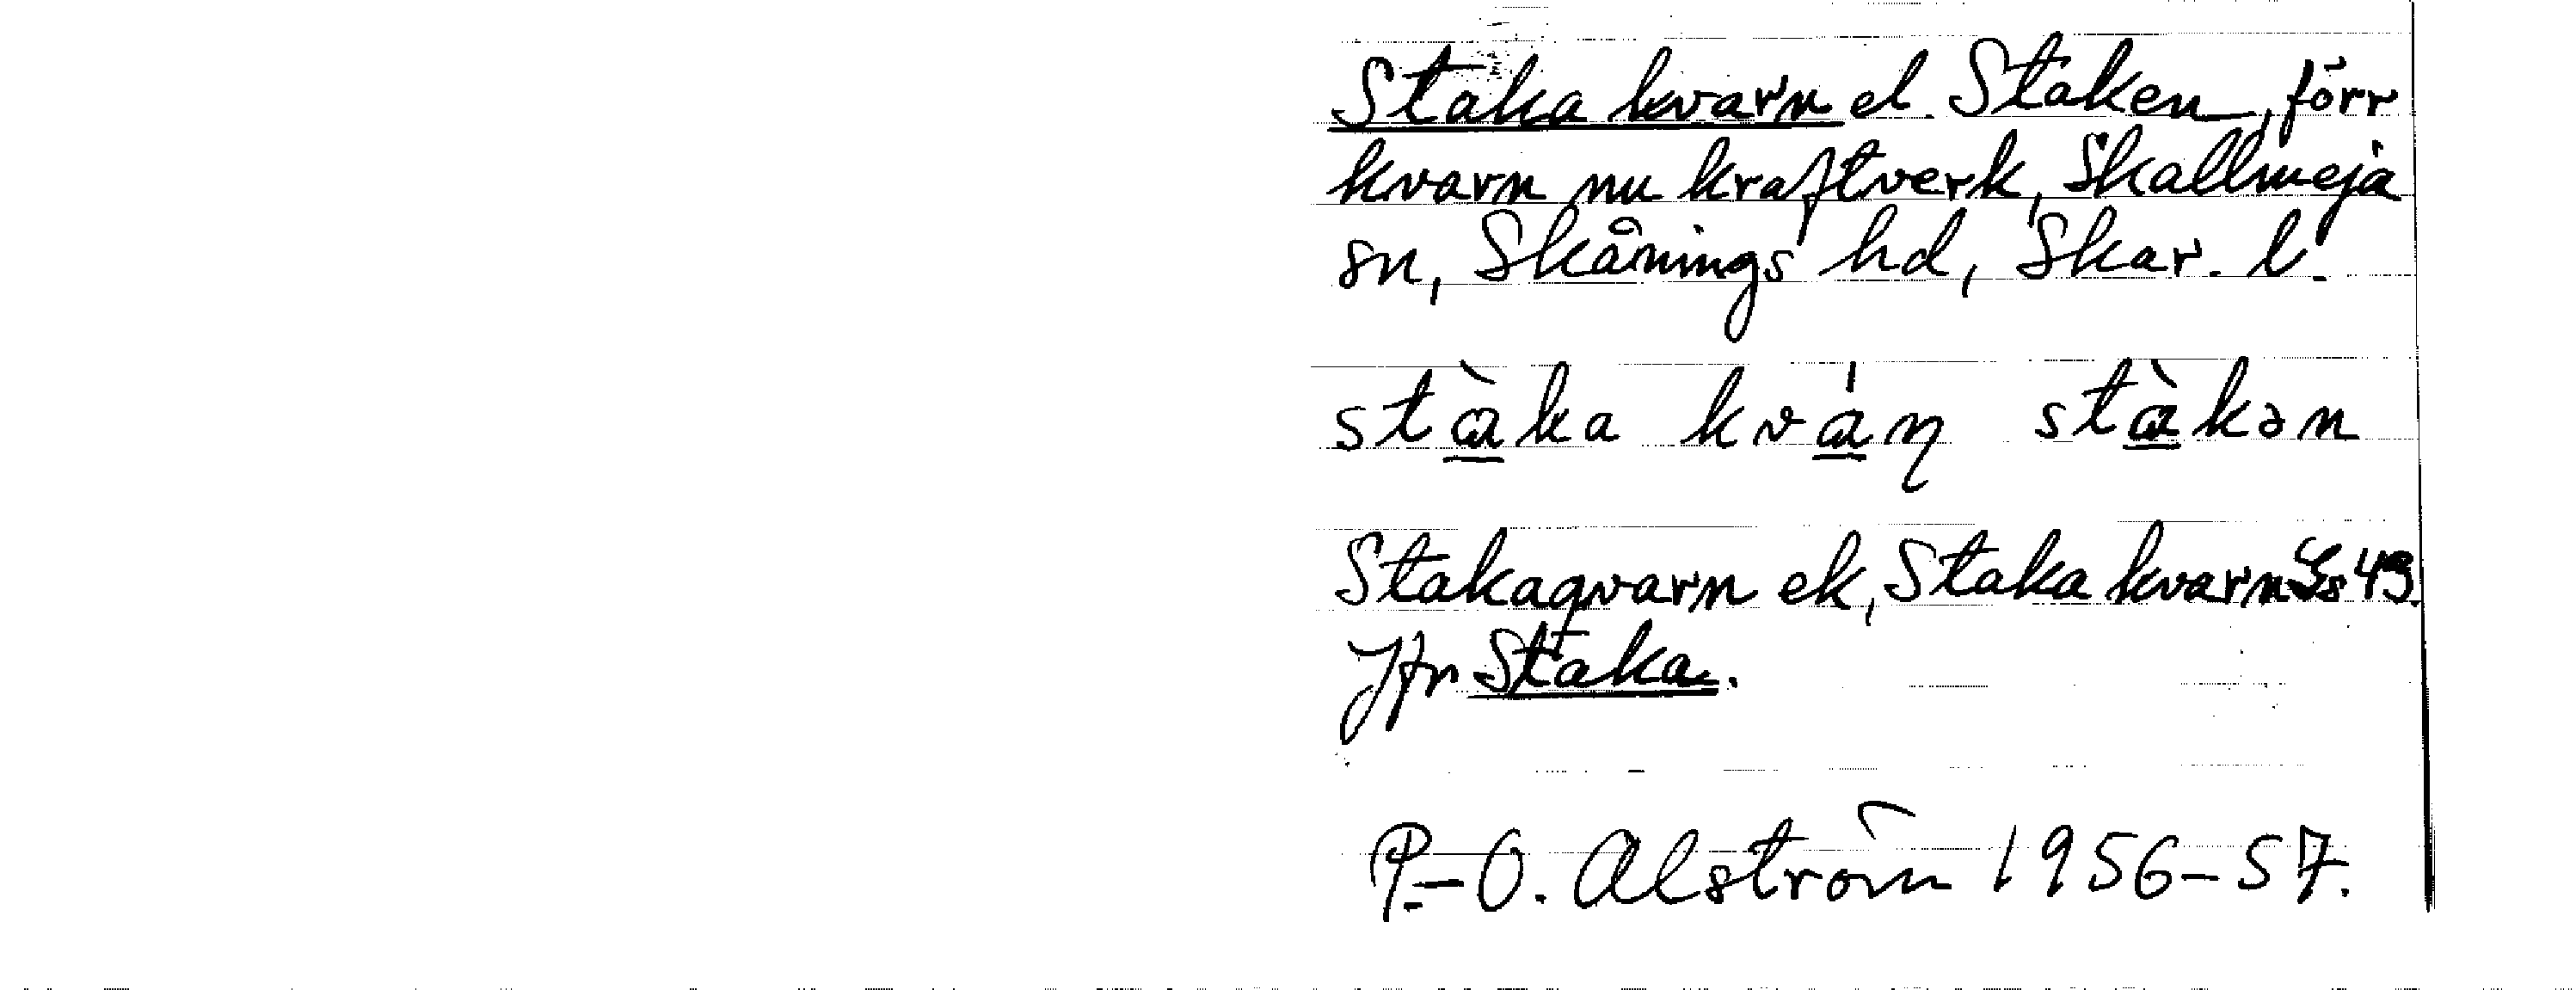 Staka kvarn el. Staken, förr
kvarn nu kraftverk, Skallmeja
sn, Skånings hd, Skar. l.
stàka kváɳ stàkən
Stakaqvarn ek, Staka kvarn Ls 43.
Jfr Staka.
P.-O. Alström 1956-57.